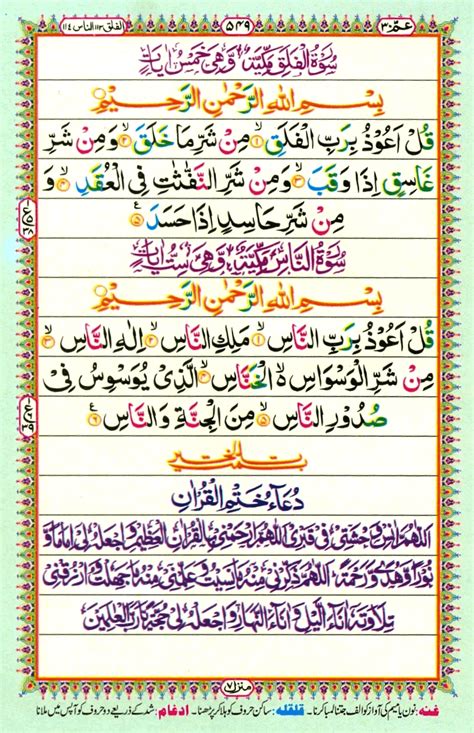 عمّ ٣٠ ٥٤٩ الفلق ١١٣ الناس ١١٤
سُوْرَةُ الْفَلَقِ مَكِّيَّةٌ وَّهِيَ خَمْسُ اٰيَاتٍ
بِسْمِ اللّٰهِ الرَّحْمٰنِ الرَّحِيْمِ
قُلْ اَعُوْذُ بِرَبِّ الْفَلَقِ ۙ﴿۱﴾ مِنْ شَرِّ مَا خَلَقَ ۙ﴿۲﴾ وَمِنْ شَرِّ
غَاسِقٍ اِذَا وَقَبَ ۙ﴿۳﴾ وَمِنْ شَرِّ النَّفّٰثٰتِ فِي الْعُقَدِ ۙ﴿۴﴾ وَ
مِنْ شَرِّ حَاسِدٍ اِذَا حَسَدَ ﴿۵﴾
سُوْرَةُ النَّاسِ مَكِّيَّةٌ وَّهِيَ سِتُّ اٰيَاتٍ
بِسْمِ اللّٰهِ الرَّحْمٰنِ الرَّحِيْمِ
قُلْ اَعُوْذُ بِرَبِّ النَّاسِ ۙ﴿۱﴾ مَلِكِ النَّاسِ ۙ﴿۲﴾ اِلٰهِ النَّاسِ ۙ﴿۳﴾
مِنْ شَرِّ الْوَسْوَاسِ ۵ الْخَنَّاسِ ۙ﴿۴﴾ الَّذِيْ يُوَسْوِسُ فِيْ
صُدُوْرِ النَّاسِ ۙ﴿۵﴾ مِنَ الْجِنَّةِ وَالنَّاسِ ﴿۶﴾
تمت بالخير
دُعَآءُ خَتْمِ الْقُرْاٰنِ
اَللّٰهُمَّ اٰنِسْ وَحْشَتِيْ فِيْ قَبْرِيْ اَللّٰهُمَّ ارْحَمْنِيْ بِالْقُرْاٰنِ الْعَظِيْمِ وَاجْعَلْهُ لِيْ اِمَامًا وَّ
نُوْرًا وَّهُدًى وَّرَحْمَةً اَللّٰهُمَّ ذَكِّرْنِيْ مِنْهُ مَا نَسِيْتُ وَعَلِّمْنِيْ مِنْهُ مَا جَهِلْتُ وَارْزُقْنِيْ
تِلَاوَتَهٗ اٰنَآءَ الَّيْلِ وَاٰنَآءَ النَّهَارِ وَاجْعَلْهُ لِيْ حُجَّةً يَّا رَبَّ الْعٰلَمِيْنَ
منزل ٧
غنہ: نون یا میم کی آواز کو الف جتنا لمبا کرنا۔ قلقلہ: ساکن حروف کو ہلا کر پڑھنا۔ ادغام: شد کے ذریعے دو حروف کو آپس میں ملانا